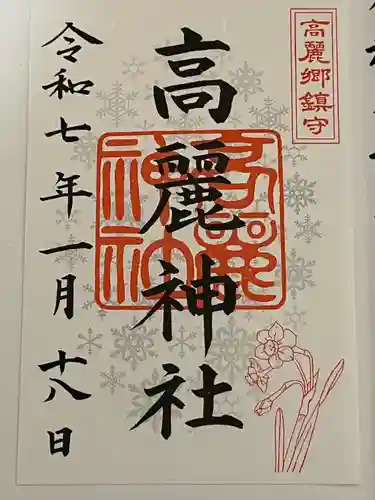 高麗郷鎮守
高麗神社
高麗神社
令和七年一月十八日